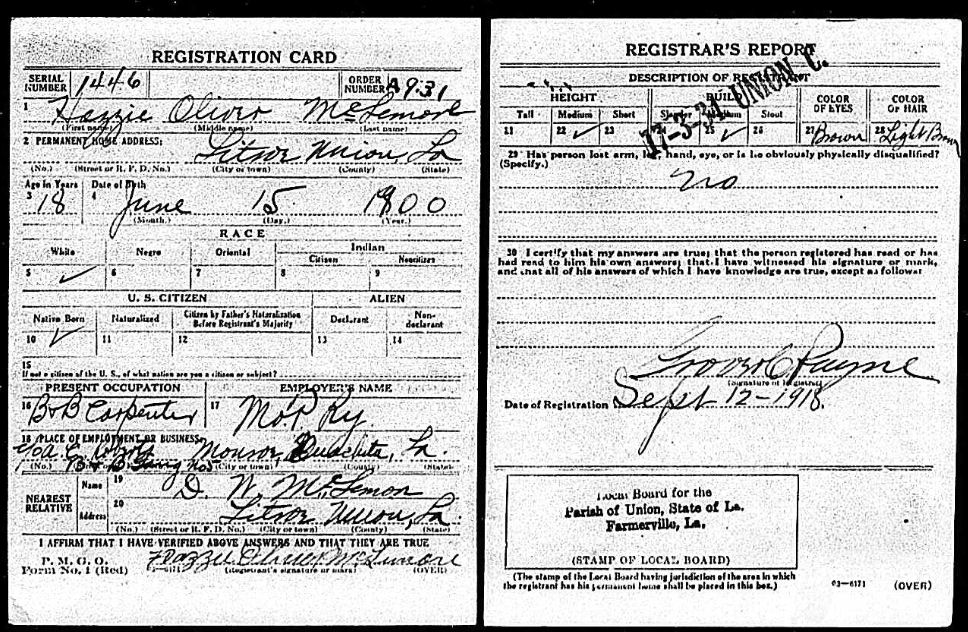 REGISTRATION CARD
SERIAL NUMBER 1446
ORDER NUMBER A931
1 Hazzie Oliver McLemore
(First name) (Middle name) (Last name)
2 PERMANENT HOME ADDRESS:
Litroe Union, La
(No.) (Street or R. F. D. No.) (City or town) (County) (State)
Age in Years Date of Birth
3 18 4 June 15 1900
(Month.) (Day.) (Year.)
RACE
White Negro Oriental Indian
Citizen Noncitizen
5 ✓ 6 7 8 9
U. S. CITIZEN ALIEN
Native Born Naturalized Citizen by Father's Naturalization Before Registrant's Majority Declarant Non-declarant
10 ✓ 11 12 13 14
15
If not a citizen of the U. S., of what nation are you a citizen or subject?
PRESENT OCCUPATION EMPLOYER'S NAME
16 B&B Carpenter 17 Mo P Ry
18 PLACE OF EMPLOYMENT OR BUSINESS:
Monroe, Ouachita, La.
(No.) (City or town) (County) (State)
NEAREST RELATIVE
Name 19 D. W. McLemore
Address 20 Litroe Union, La
(No.) (Street or R. F. D. No.) (City or town) (County) (State)
I AFFIRM THAT I HAVE VERIFIED ABOVE ANSWERS AND THAT THEY ARE TRUE
P. M. G. O.
Form No. 1 (Red) 03-6171 Hazzie Oliver McLemore
(Registrant's signature or mark) (OVER)
REGISTRAR'S REPORT
DESCRIPTION OF REGISTRANT
17-3-34 UNION C.
HEIGHT BUILD COLOR OF EYES COLOR OF HAIR
Tall Medium Short Slender Medium Stout
21 22 ✓ 23 24 25 ✓ 26 27 Brown 28 Light Brown
29 Has person lost arm, leg, hand, eye, or is he obviously physically disqualified?
(Specify.)
No
30 I certify that my answers are true; that the person registered has read or has
had read to him his own answers; that I have witnessed his signature or mark,
and that all of his answers of which I have knowledge are true, except as follows:
Grover C Payne
(Signature of Registrar)
Date of Registration Sept 12-1918.
Local Board for the
Parish of Union, State of La.
Farmerville, La.
(STAMP OF LOCAL BOARD)
(The stamp of the Local Board having jurisdiction of the area in which
the registrant has his permanent home shall be placed in this box.)
03-6171 (OVER)